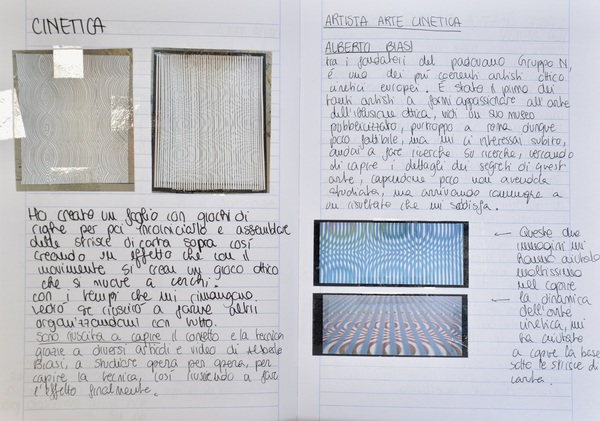 CINETICA
Ho creato un foglio con giochi di
righe per poi incorniciarlo e assemblare
delle strisce di carta sopra così
creando un effetto che con il
movimento si crea un gioco ottico
che si muove a cerchi.
con i tempi che mi rimangono
vedrò se riuscirò a farne altri
organizzandomi con tutto.
Sono riuscita a capire il concetto e la tecnica
grazie a diversi articoli e video di Alberto
Biasi, a studiare opera per opera, per
capire la tecnica, così riuscendo a fare
l'effetto finalmente.
ARTISTA ARTE CINETICA
ALBERTO BIASI
tra i fondatori del padovano Gruppo N,
è uno dei più coerenti artisti ottico
cinetici europei. È stato il primo dei
tanti artisti a farmi appassionare all'arte
dell'illusione ottica, vidi un suo museo
pubblicizzato, purtroppo a roma dunque
poco fattibile, ma mi ci interessai subito,
andai a fare ricerche su ricerche, cercando
di capire i dettagli dei segreti di quest
arte, capendone poco non avendola
studiata, ma arrivando comunque a
un risultato che mi soddisfa.
← Queste due
immagini mi
hanno aiutato
moltissimo
nel capire
← la dinamica
dell'arte
cinetica, mi
ha aiutato
a capire la base
sotto e strisce di
carta.